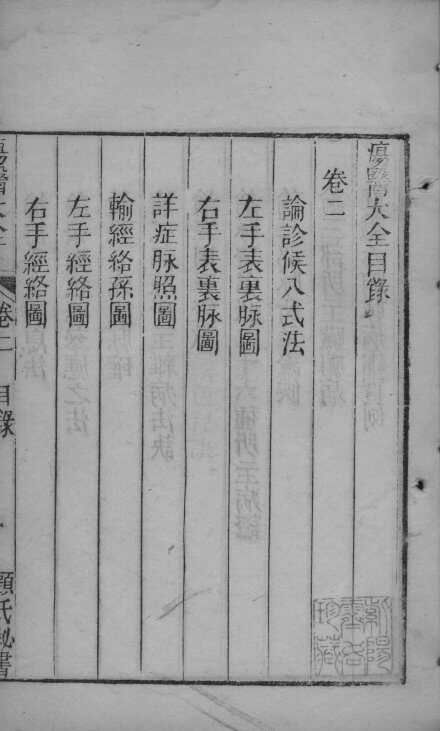 瘍醫大全目錄
卷二
論診候八式法
左手表裏脉圖
右手表裏脉圖
詳症脉照圖
輸經絡孫圖
左手經絡圖
右手經絡圖
瘍醫大全
卷二 目錄
一
顧氏秘書